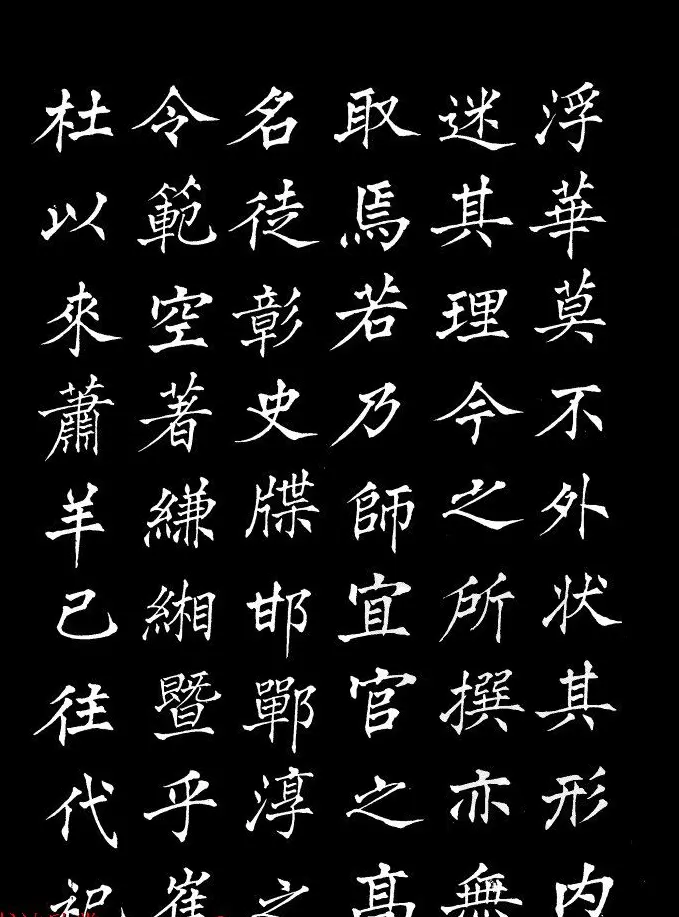 浮華莫不外状其形内
迷其理今之所撰亦無
取焉若乃師宜官之高
名徒彰史牒邯鄲淳之
令範空著縑緗暨乎崔
杜以來蕭羊已往代祀